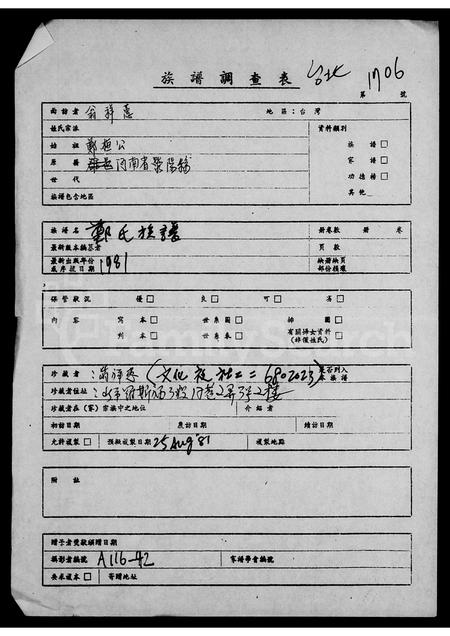 族譜調查表 台北 1706
第 號
面訪者 翁祥惠 地區：台灣
姓氏宗派 資料類別
始祖 鄭桓公 族譜□
原籍 河南省滎陽縣 家譜□
世代 功德榜□
族譜包含地區 其他
族譜名 鄭氏族譜 冊卷數 冊 卷
最新版本編纂者 頁數
最新出版年份或序跋日期 1981 缺冊缺頁部份損壞
保管狀況 優□ 良□ 可□ 劣□
內容 寫本□ 世系圖□ 插圖□
刊本□ 世系表□ 有關婦女資料(非僅姓氏)□
珍藏者：翁祥惠（文化夜社工二 是否列入本族譜
珍藏者住址：
珍藏者在(家)宗族中之地位 介紹者
初訪日期 應訪日期 續訪日期
允許複製□ 預擬複製日期 25 Aug '81 複製地點
附註
贈予者受款捐贈日期
攝影者編號 A116-42 家譜學會編號
要求複本□ 寄贈地址
FamilySearch